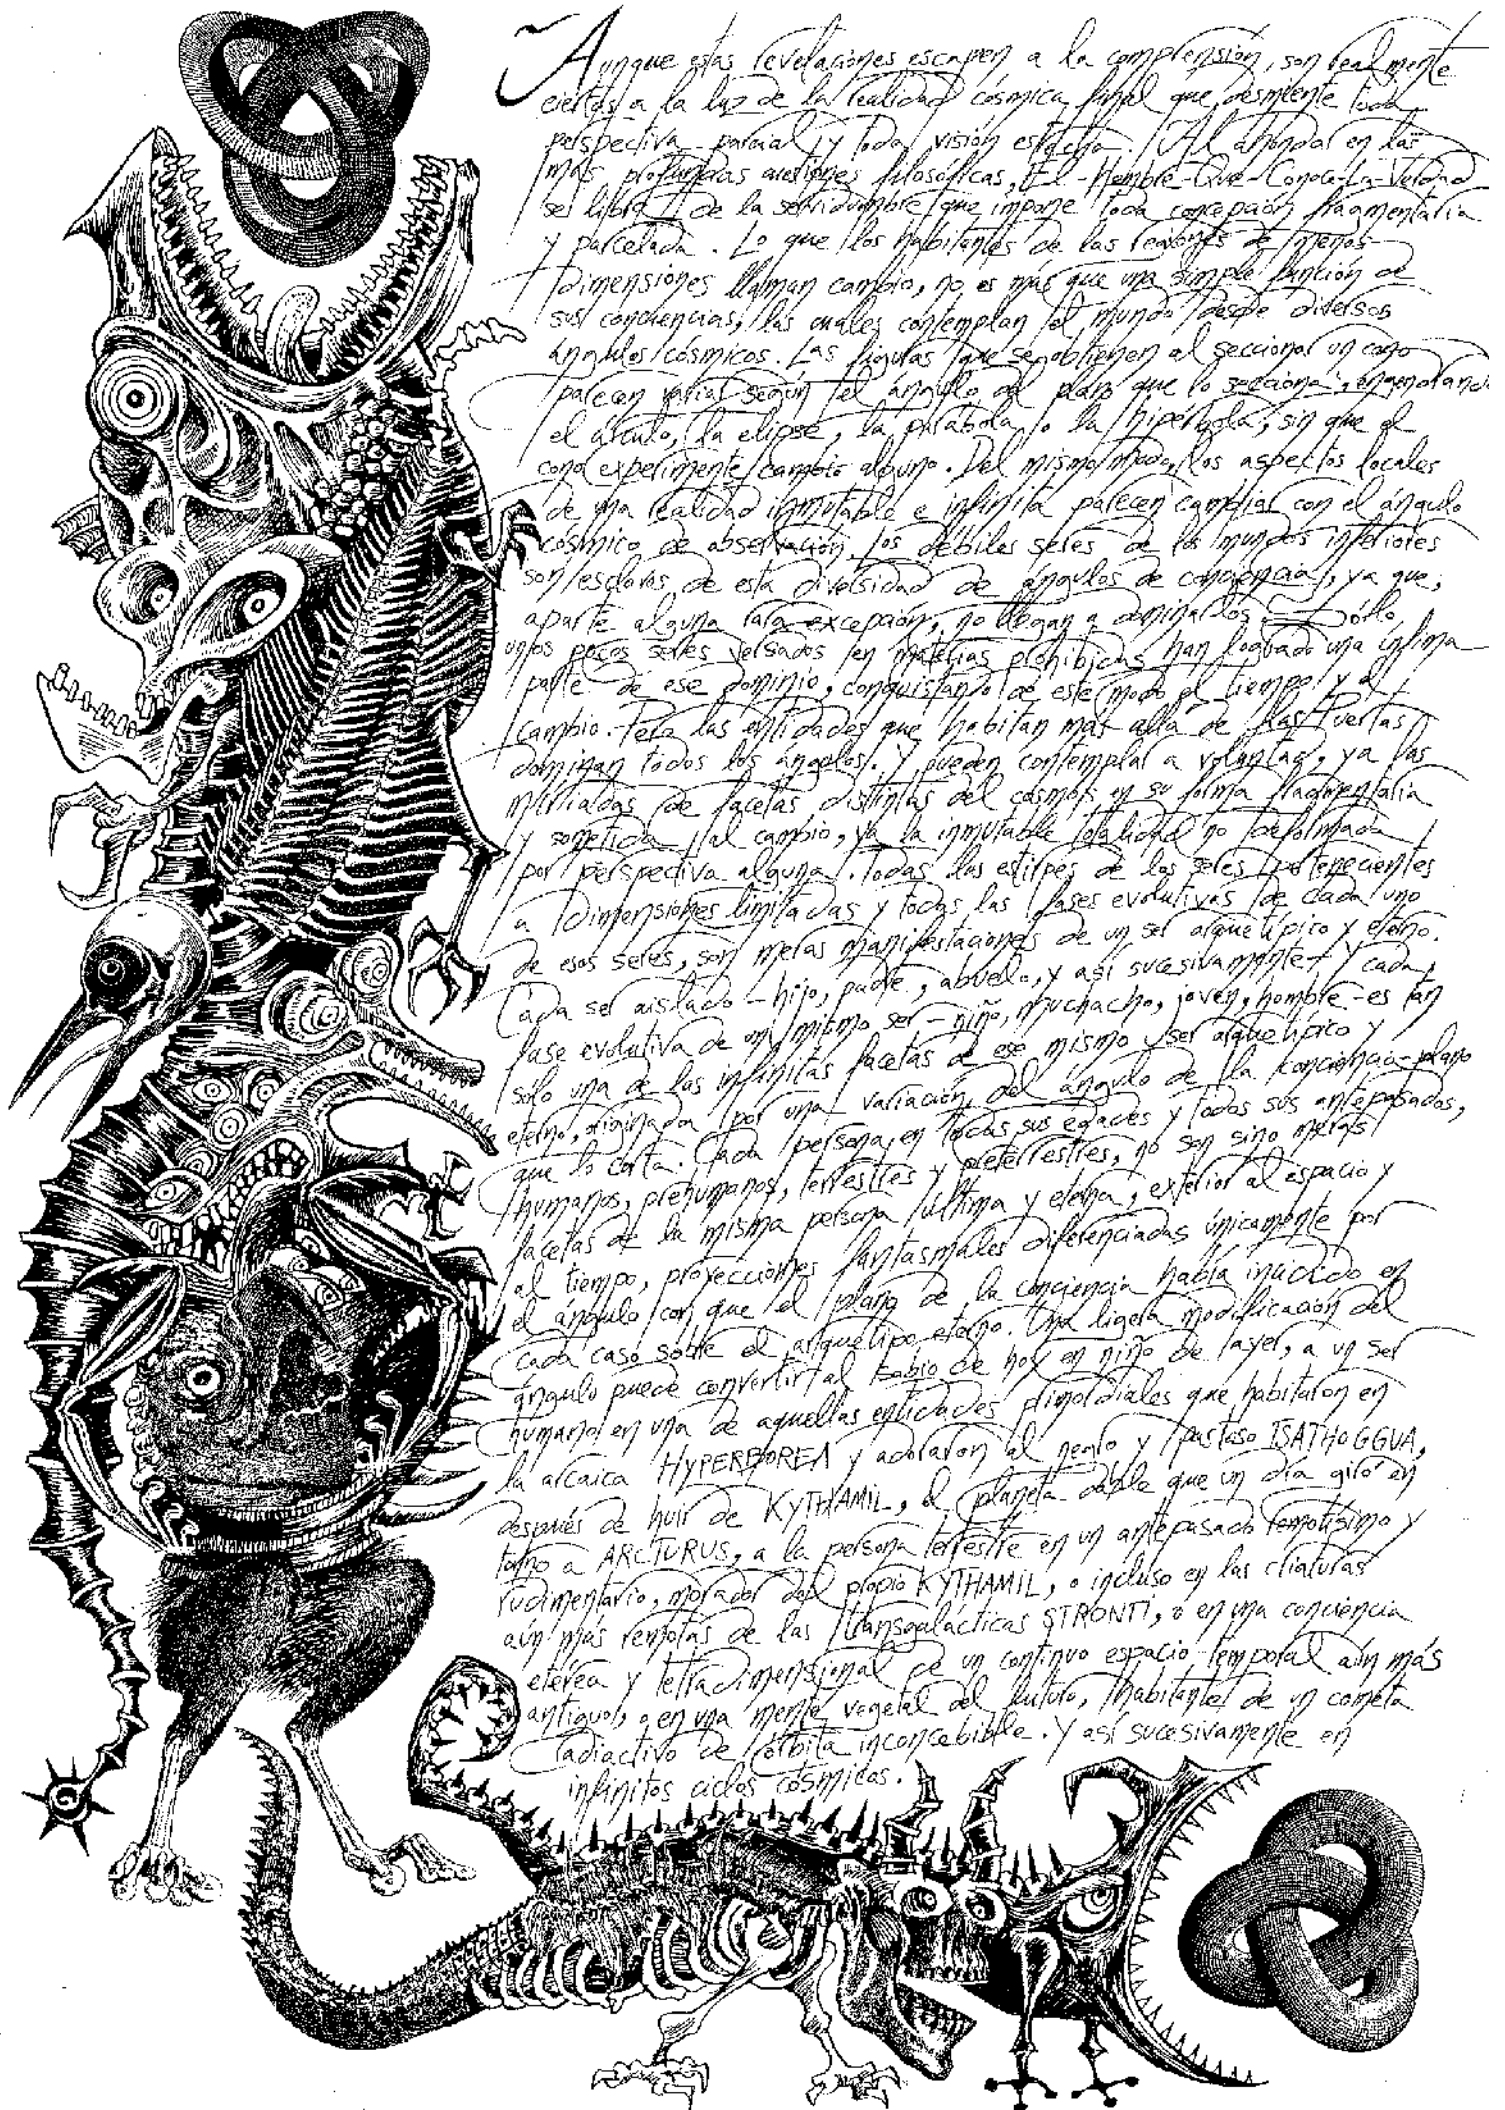 Aunque estas revelaciones escapen a la comprensión, son realmente
ciertas a la luz de la realidad cósmica final que desmiente toda
perspectiva parcial y toda visión estrecha. Al ahondar en las
más profundas cuestiones filosóficas, El-Hombre-Que-Conoce-La-Verdad
se libra de la servidumbre que impone toda concepción fragmentaria
y parcelada. Lo que los habitantes de las regiones de menos
dimensiones llaman cambio, no es más que una simple función de
sus conciencias, las cuales contemplan el mundo desde diversos
ángulos cósmicos. Las figuras que se obtienen al seccionar un cono
parecen variar según el ángulo del plano que lo secciona, engendrando
el círculo, la elipse, la parábola o la hipérbola, sin que el
cono experimente cambio alguno. Del mismo modo, los aspectos locales
de una realidad inmutable e infinita parecen cambiar con el ángulo
cósmico de observación. Los débiles seres de los mundos inferiores
son esclavos de esta diversidad de ángulos de conciencia, ya que,
aparte alguna rara excepción, no llegan a dominarlos. Sólo
unos pocos seres versados en materias prohibidas han logrado una ínfima
parte de ese dominio, conquistando de este modo el tiempo y el
cambio. Pero las entidades que habitan más allá de las Puertas
dominan todos los ángulos. Y pueden contemplar a voluntad, ya las
miriadas de facetas distintas del cosmos en su forma fragmentaria
y sometida al cambio, ya la inmutable totalidad no deformada
por perspectiva alguna. Todas las estirpes de los seres pertenecientes
a dimensiones limitadas y todas las fases evolutivas de cada uno
de esos seres, son meras manifestaciones de un ser arquetípico y eterno.
Cada ser aislado - hijo, padre, abuelo, y así sucesivamente - y cada
fase evolutiva de un mismo ser - niño, muchacho, joven, hombre - es tan
sólo una de las infinitas facetas de ese mismo ser arquetípico y
eterno, originada por una variación del ángulo de la conciencia-plano
que lo corta. Cada persona, en todas sus edades y todos sus antepasados,
humanos, prehumanos, terrestres y preterrestres, no son sino meras
facetas de la misma persona última y eterna, exterior al espacio y
al tiempo, proyecciones fantasmales diferenciadas únicamente por
el ángulo con que el plano de la conciencia había incidido en
cada caso sobre el arquetipo eterno. Una ligera modificación del
ángulo puede convertir al sabio de hoy en niño de ayer, a un ser
humano en una de aquellas entidades primordiales que habitaron en
la arcaica HYPERBOREA y adoraron al negro y pastoso TSATHOGGUA,
después de huir de KYTHAMIL, el planeta doble que un día giró en
torno a ARCTURUS, a la persona terrestre en un antepasado remotísimo y
rudimentario, morador del propio KYTHAMIL, o incluso en las criaturas
aún más remotas de las transgalácticas STRONTI, o en una conciencia
etérea y tetradimensional de un continuo espacio-temporal aún más
antiguo, o en una mente vegetal del futuro, habitante de un cometa
radiactivo de órbita inconcebible. Y así sucesivamente en
infinitos ciclos cósmicos.